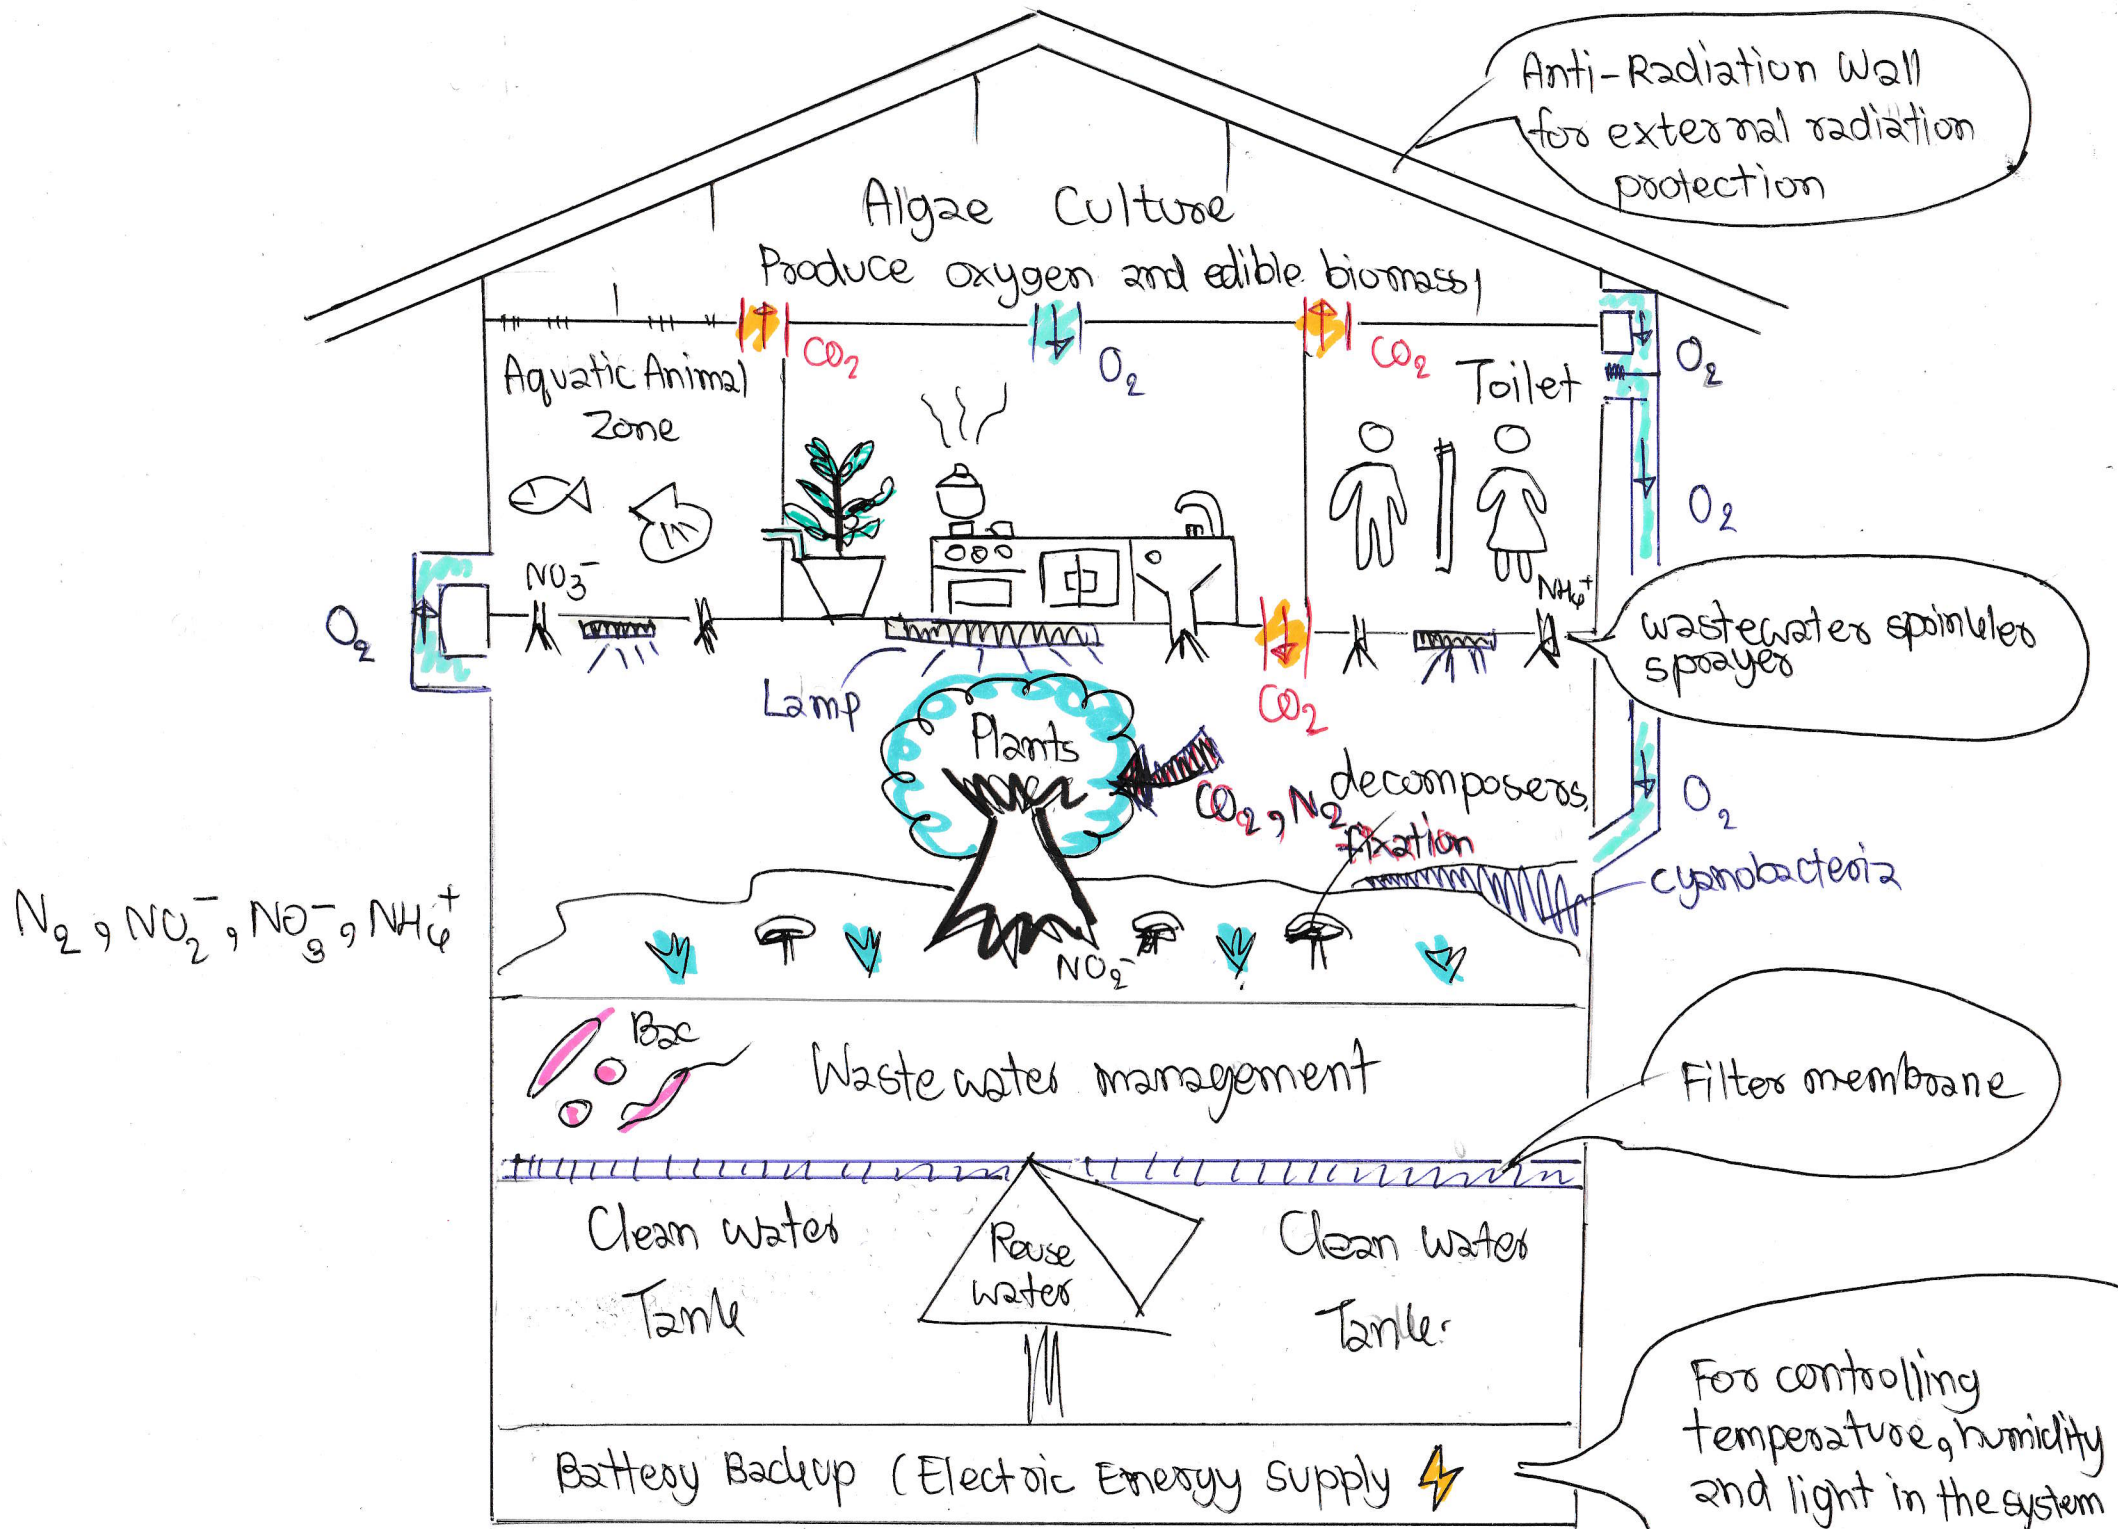 Anti-Radiation Wall
for external radiation
protection
Algae Culture
Produce oxygen and edible biomass
CO2
O2
CO2
O2
Aquatic Animal
Zone
Toilet
O2
NO3-
NH4+
O2
wastewater sprinkler
sprayer
Lamp
CO2
Plants
CO2, N2
fixation
decomposers
O2
cyanobacteria
N2, NO2-, NO3-, NH4+
NO2-
Bac
Waste water management
Filter membrane
Clean water
Tank
Reuse
water
Clean water
Tank
For controlling
temperature, humidity
and light in the system
Battery Backup (Electric Energy Supply